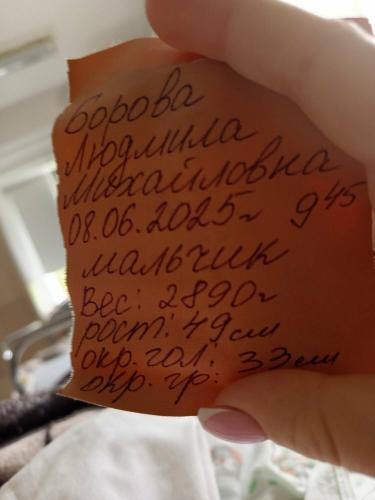 Борова
Людмила
Михайловна
08.06.2025г 9 45
мальчик
Вес: 2890г
рост: 49см
окр. гол: 33см
окр. гр: